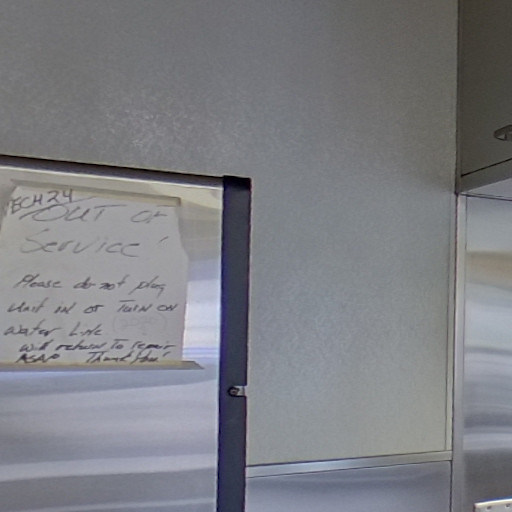 ECH24
OUT OF
Service!
Please do not plug
unit in or Turn on
water Line
will return To repair
ASAP Thank You!